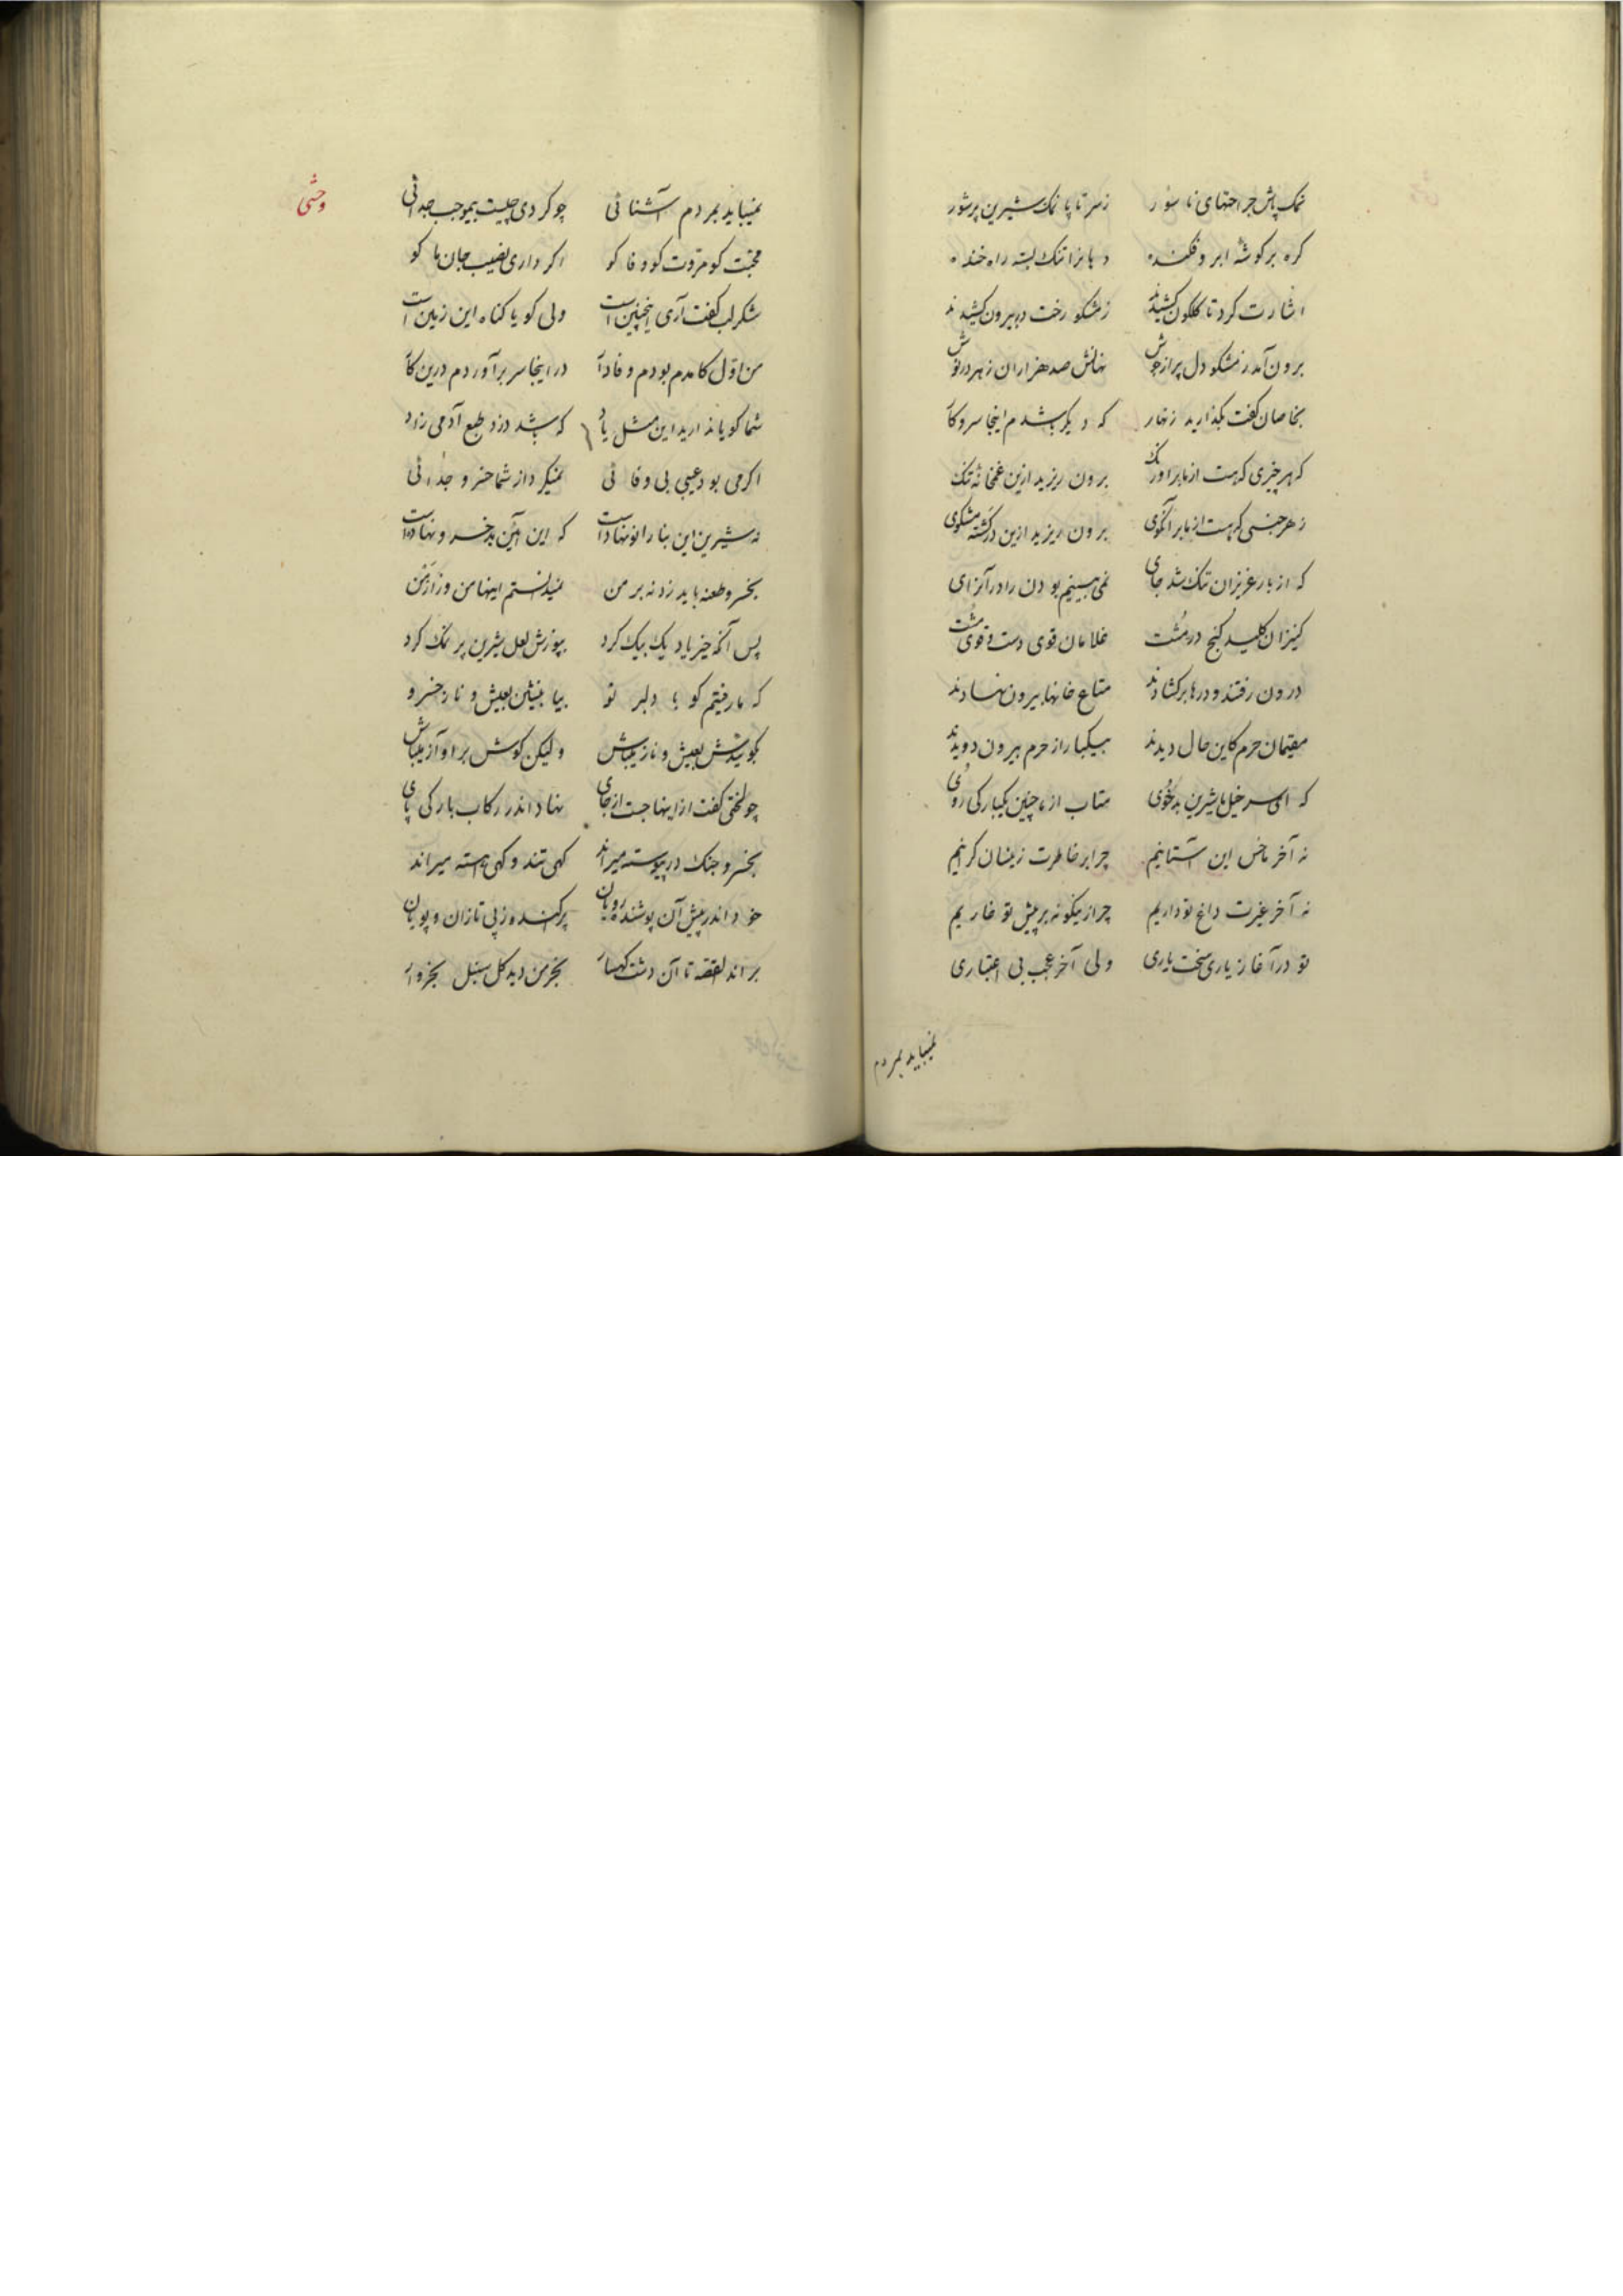 نمک پاش جراحتهای ناسور زسر تا پا نمک شیرین پر شور
کره بر کوشهٔ ابرو فکنده دهانرا تنک بسته راه خنده
اشارت کرد تا کلکون کشیدند زمشکو رخت بیرون کشیدند
برون آمد زمشکو دل پر از جوش نهانش صد هزاران زهر در نوش
بخاصان گفت مگذارید زنهار که دیگر باشدم اینجا سر و کار
که هر چیزی که هست از ما بر اورنک برون ریزید ازین غمخانه تنک
زهر جنسی که هست از ما برآنکوی برون ریزید ازین در کشته مشکوی
که از بار عزیزان تنک شد جای نمی‌بینیم بودن را در آن رای
کنیزان کلید کنج در مشت غلامان قوی دست و قوی پشت
درون رفتند و درها بر کشادند متاع خانها بیرون نهادند
مقیمان حرم کاین حال دیدند بیکبار از حرم بیرون دویدند
که ای سر خیل ما شیرین بدخوی متاب از ما چنین یکبارکی روی
نه آخر خاص این آستانیم چرا بر خاطرت زینسان کرانیم
نه آخر غیرت داغ تو داریم چرا زینکونه بر پیش تو خاریم
تو در آغاز یاری سخت یاری ولی آخر عجب بی اعتباری
نمیباید بمردم
وحشی
نمیباید بمردم آشنائی چو کردی چیست بیموجب جدائی
محبت کو مروت کو وفا کو اکر داری نصیب جان ما کو
شکر لب گفت آری اینچنین است ولی کویا کناه این زمین است
من اول کامدم بودم وفادار در اینجا سر برآوردم درین کار
شما کویا ندارید این مثل یاد که باشد دزد طبع آدمی زاد
اکر می بود عیبی بی وفائی نمیکرد از شما خسرو جدائی
نه شیرین این بنا را نو نهادست که این آئین بد خسرو نهادست
بخسرو طعنه باید زد نه بر من نمیدانستم اینها من در ارمن
پس آنکه خیرباد یک بیک کرد بپوزش لعل شیرین پر نمک کرد
که ما رفتیم کو با دلبر نو بیا بنشین بعیش و ناز خسرو
بکوئیدش بعیش و ناز میباش ولیکن کوش بر آواز میباش
چو لختی گفت ازاینها جست از جای نهاد اندر رکاب بارکی پای
بخسرو جنک در پیوسته میراند کهی تند و کهی آهسته میراند
خود اندر پیش و آن پوشنده رویان پرکنده ز پی تازان و پویان
براند القصه تا آن دشت کهسار بخرمن دید کل سنبل بخروار